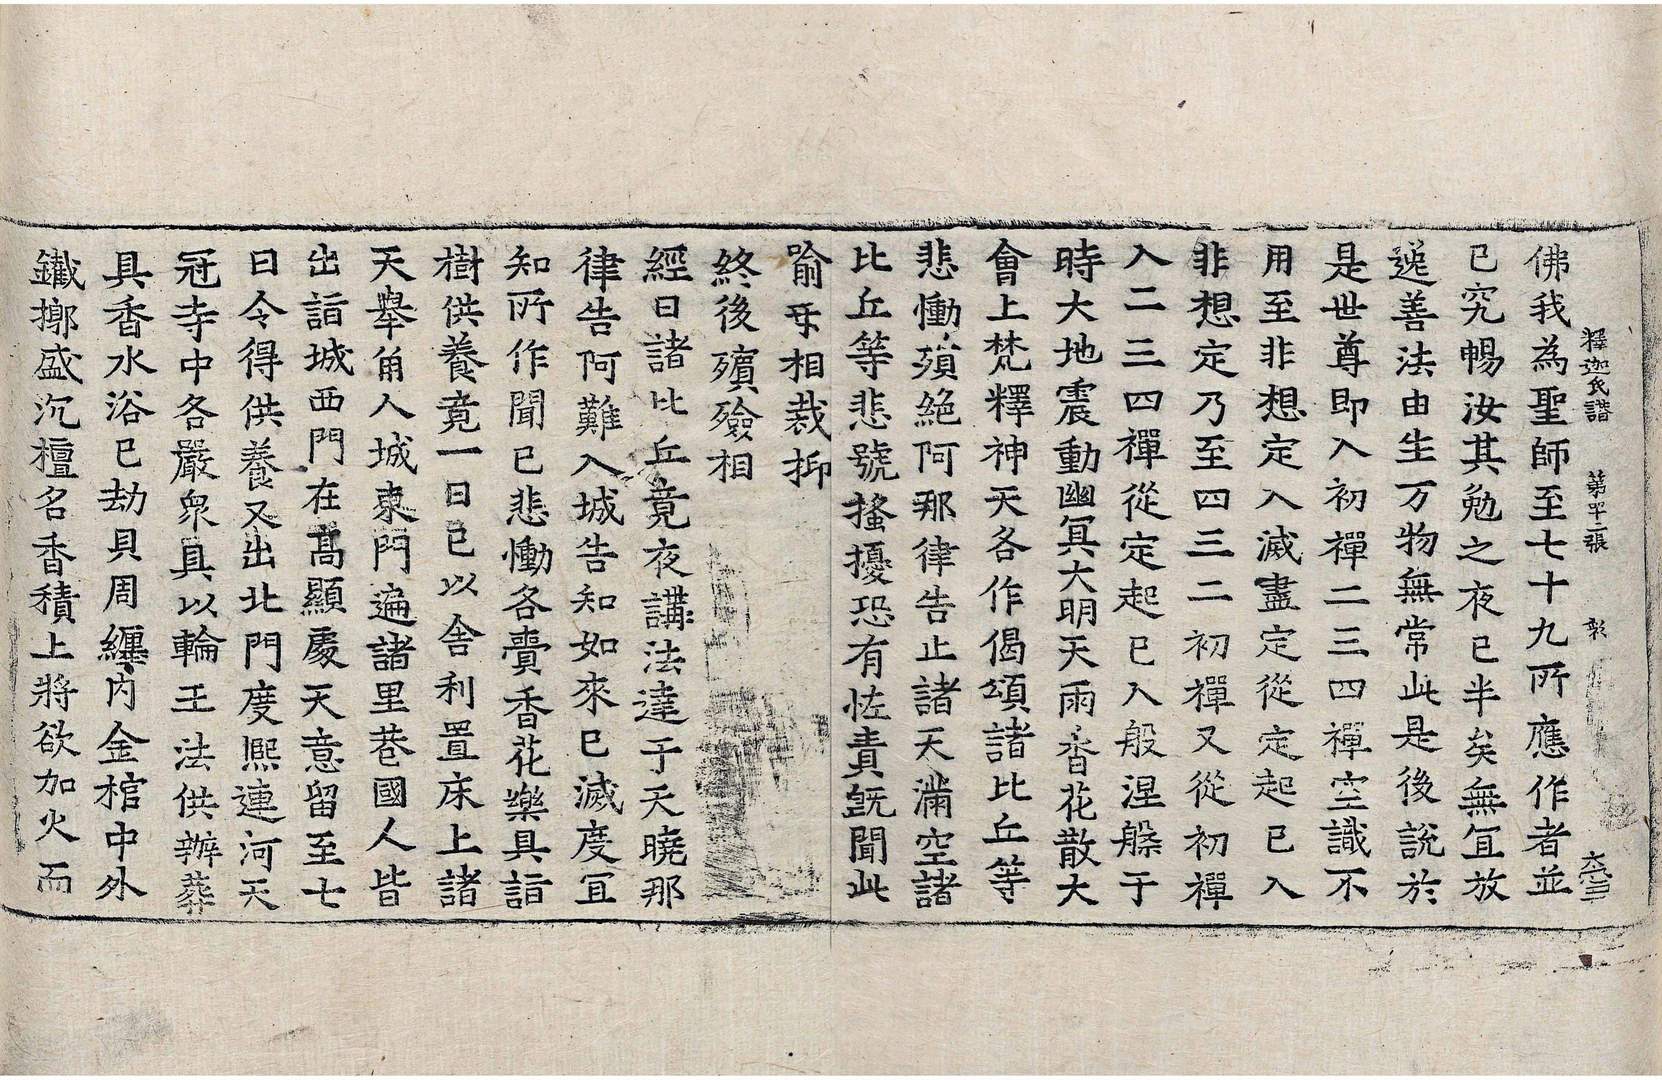 釋迦氏譜　第平二張　彰
佛我為聖師至七十九所應作者並
已究暢汝其勉之夜已半矣無冝放
逸善法由生万物無常此是後說於
是世尊即入初禪二三四禪空識不
用至非想定入滅盡定從定起已入
非想定乃至四三二初禪又從初禪
入二三四禪從定起已入般涅槃于
時大地震動幽冥大明天雨香花散大
會上梵釋神天各作偈頌諸比丘等
悲慟殞絕阿那律告止諸天滿空諸
比丘等悲號搔擾恐有恠責旣聞此
喻㸦相裁抑
終後殯殮相
經曰諸比丘竟夜講法達于天曉那
律告阿難入城告知如來已滅度冝
知所作聞已悲慟各賷香花樂具詣
樹供養竟一日已以舍利置床上諸
天舉角人城東門遍諸里巷國人皆
出詣城西門在高顯處天意留至七
日令得供養又出北門度熙連河天
冠寺中各嚴衆具以輪王法供辦葬
具香水浴已劫貝周纏內金棺中外
鐵槨盛沉檀名香積上將欲加火而